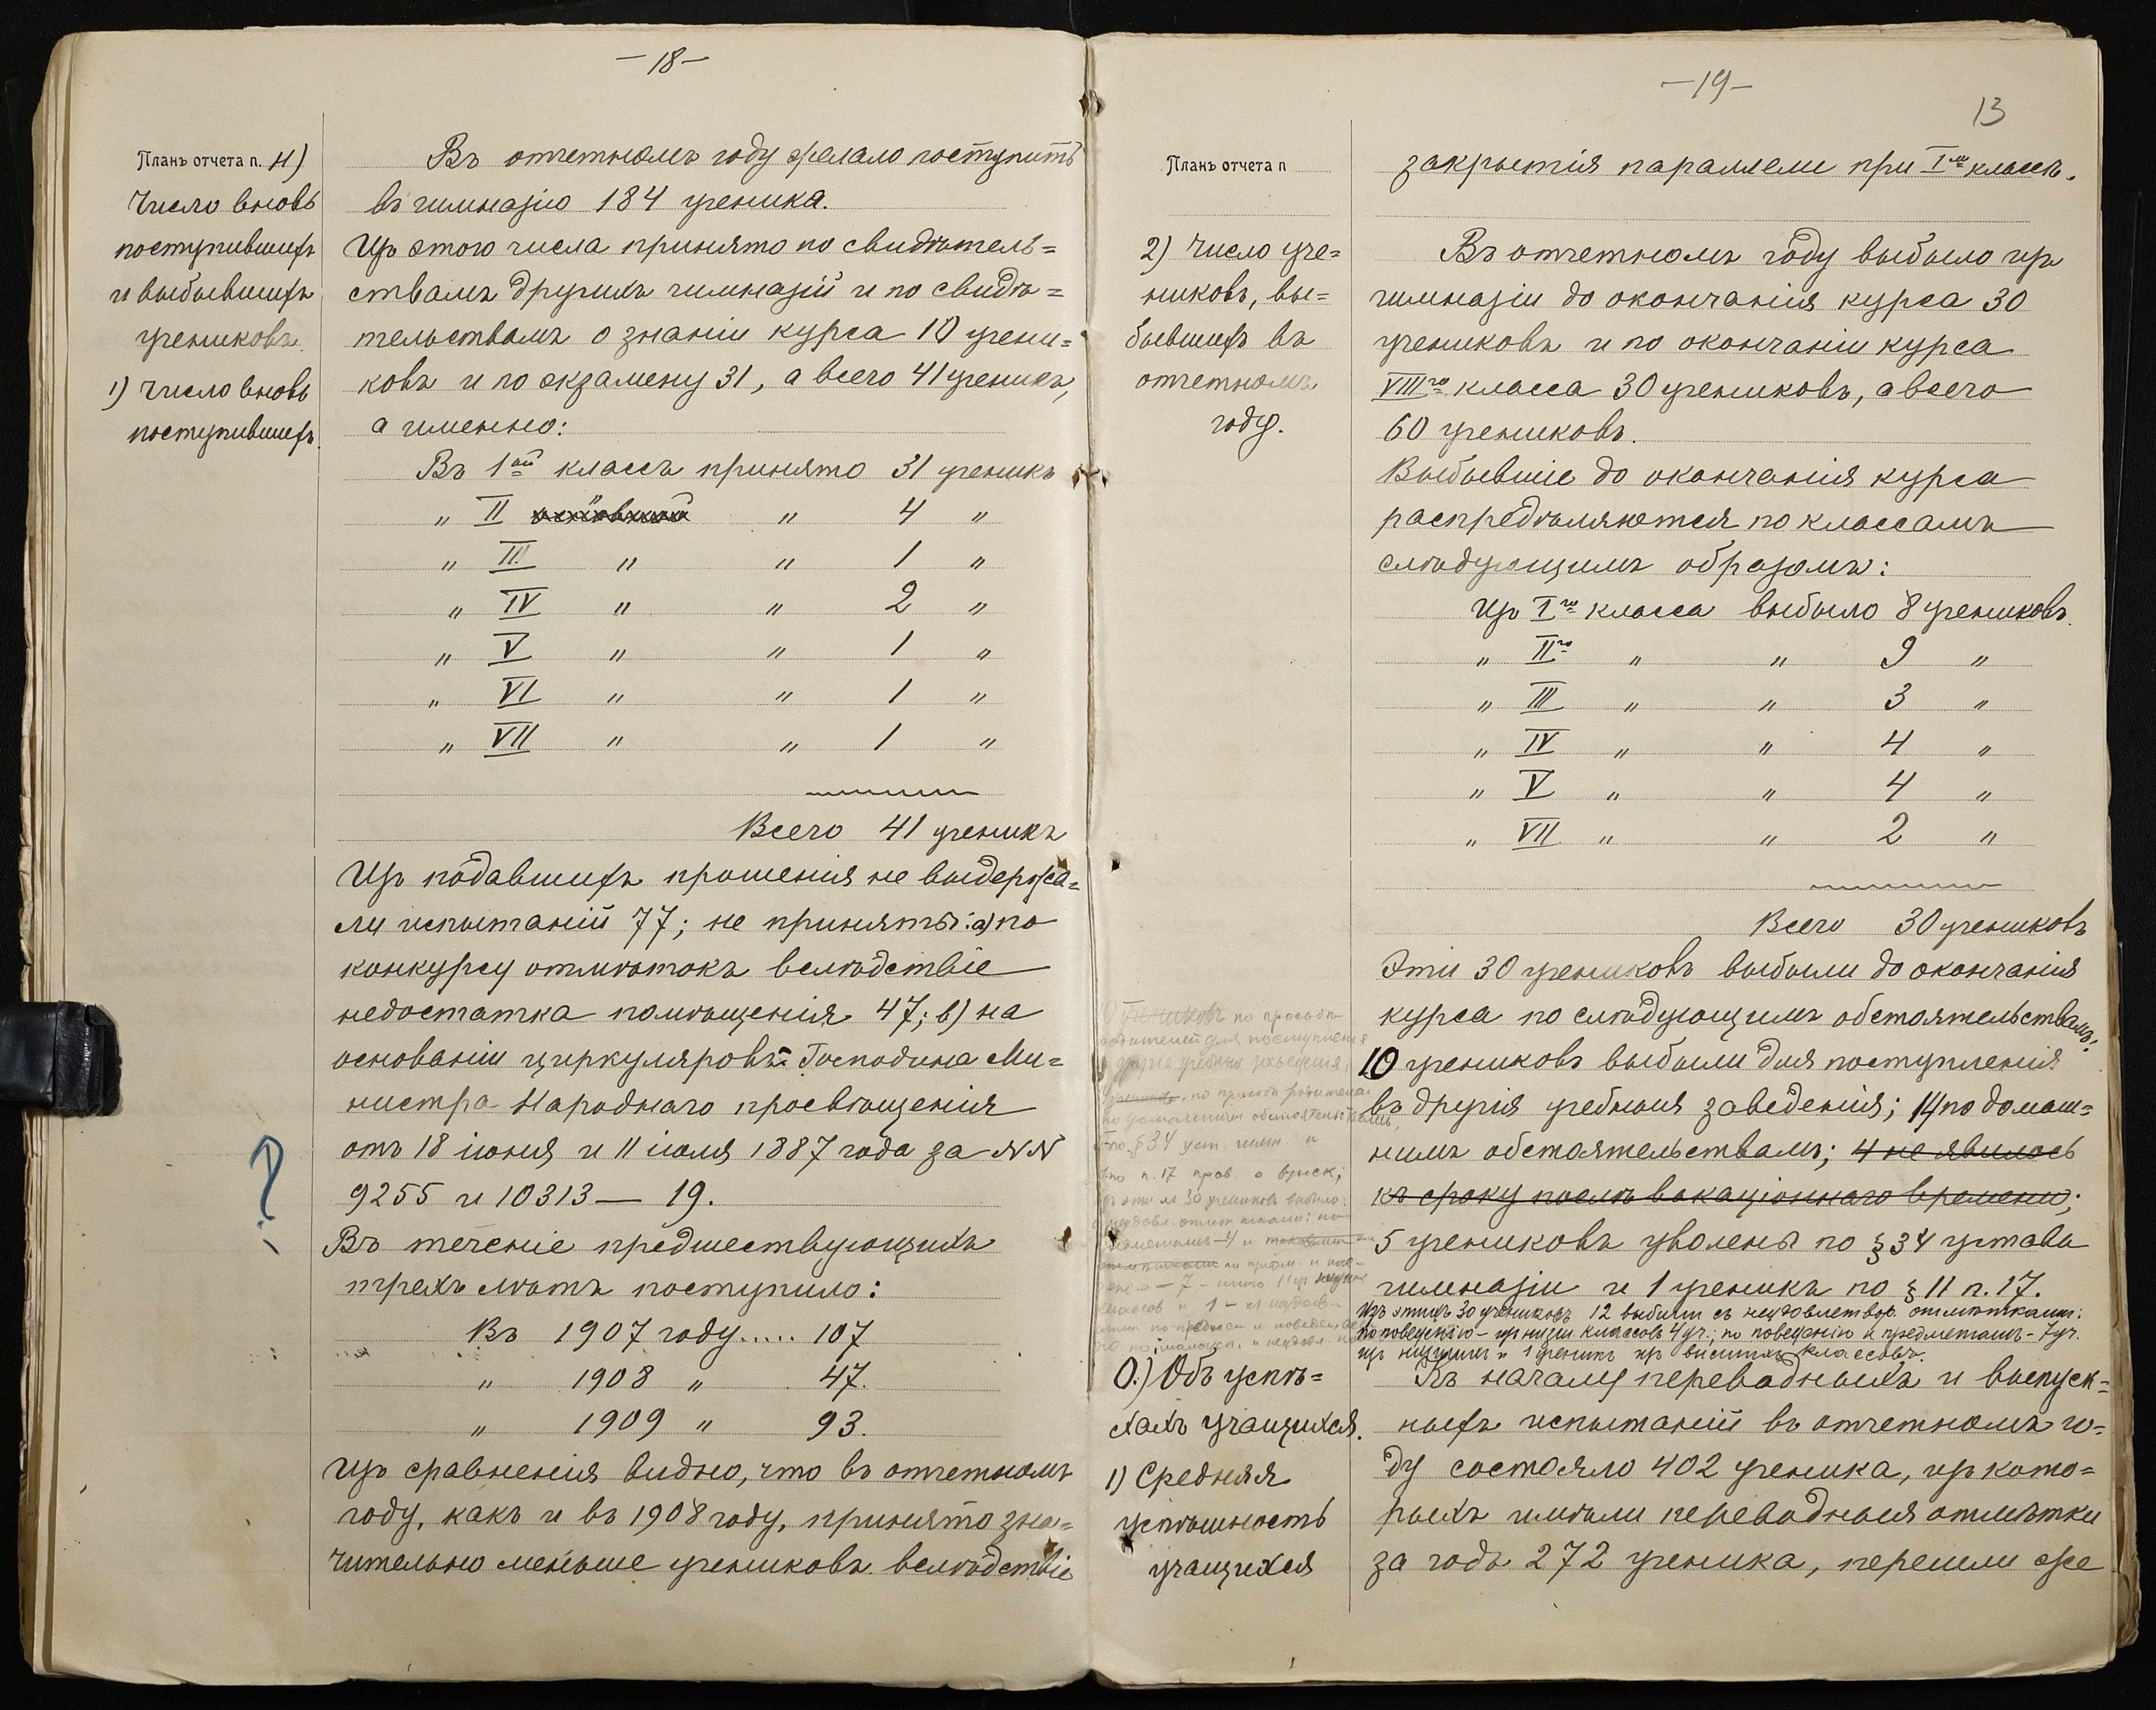 —18—
Планъ отчета п. Н)
Число вновь
поступившихъ
и выбывшихъ
учениковъ.
1) Число вновь
поступившихъ.
Въ отчетномъ году желало поступить
въ гимназію 184 ученика.
Изъ этого числа принято по свидѣтель=
ствамъ другихъ гимназій и по свидѣ=
тельствамъ о знаніи курса 10 учени=
ковъ и по экзамену 31, а всего 41 ученикъ,
а именно:
Въ 1ый классъ принято 31 ученикъ
„ II „ 4 „
„ III „ „ 1 „
„ IV „ „ 2 „
„ V „ „ 1 „
„ VI „ „ 1 „
„ VII „ „ 1 „
Всего 41 ученикъ
Изъ подавшихъ прошенія не выдержа=
ли испытаній 77; не приняты: а) по
конкурсу отмѣтокъ вслѣдствіе
недостатка помѣщенія 47; в) на
основаніи циркуляровъ Господина Ми=
нистра Народнаго просвѣщенія
отъ 18 іюня и 11 іюля 1887 года за NN
9255 и 10313 — 19.
?
Въ теченіе предшествующихъ
трехъ лѣтъ поступило:
Въ 1907 году..... 107
„ 1908 „ 47.
„ 1909 „ 93.
Изъ сравненія видно, что въ отчетномъ
году, какъ и въ 1908 году, принято зна=
чительно меньше учениковъ вслѣдствіе
—19—
13
Планъ отчета п
закрытія параллели при Iмъ классѣ.
2) Число уче=
никовъ, вы=
бывшихъ въ
отчетномъ
году.
Въ отчетномъ году выбыло изъ
гимназіи до окончанія курса 30
учениковъ и по окончаніи курса
VIIIго класса 30 учениковъ, а всего
60 учениковъ.
Выбывшіе до окончанія курса
распредѣляются по классамъ
слѣдующимъ образомъ:
Изъ Iго класса выбыло 8 учениковъ.
„ IIго „ „ 9 „
„ III „ „ 3 „
„ IV „ „ 4 „
„ V „ „ 4 „
„ VII „ „ 2 „
Всего 30 учениковъ
Эти 30 учениковъ выбыли до окончанія
курса по слѣдующимъ обстоятельствамъ:
10 учениковъ выбыли для поступленія
въ другія учебныя заведенія; 14 по домаш=
нимъ обстоятельствамъ; 4 не явилось
къ сроку послѣ вакаціоннаго времени;
5 учениковъ уволены по § 34 устава
гимназіи и 1 ученикъ по § 11 п. 17.
Изъ этихъ 30 учениковъ 12 выбыли съ неудовлетвор. отмѣтками:
по поведенію – изъ низш классовъ 4 уч.; по поведенію и предметамъ – 7 уч.
изъ низшихъ и 1 ученикъ изъ высшихъ классовъ.
учениковъ по просьбѣ
родителей для поступленія
въ другія учебныя заведенія,
по просьбѣ родителей
по домашнимъ обстоятельствамъ,
по § 34 уст. гимн и
по п. 17 прав о взыск;
О.) Объ успѣ=
хахъ учащихся.
1) Средняя
успѣшность
учащихся
Къ началу переводныхъ и выпуск=
ныхъ испытаній въ отчетномъ го=
ду состояло 402 ученика, изъ кото=
рыхъ имѣли переводныя отмѣтки
за годъ 272 ученика, перешли же